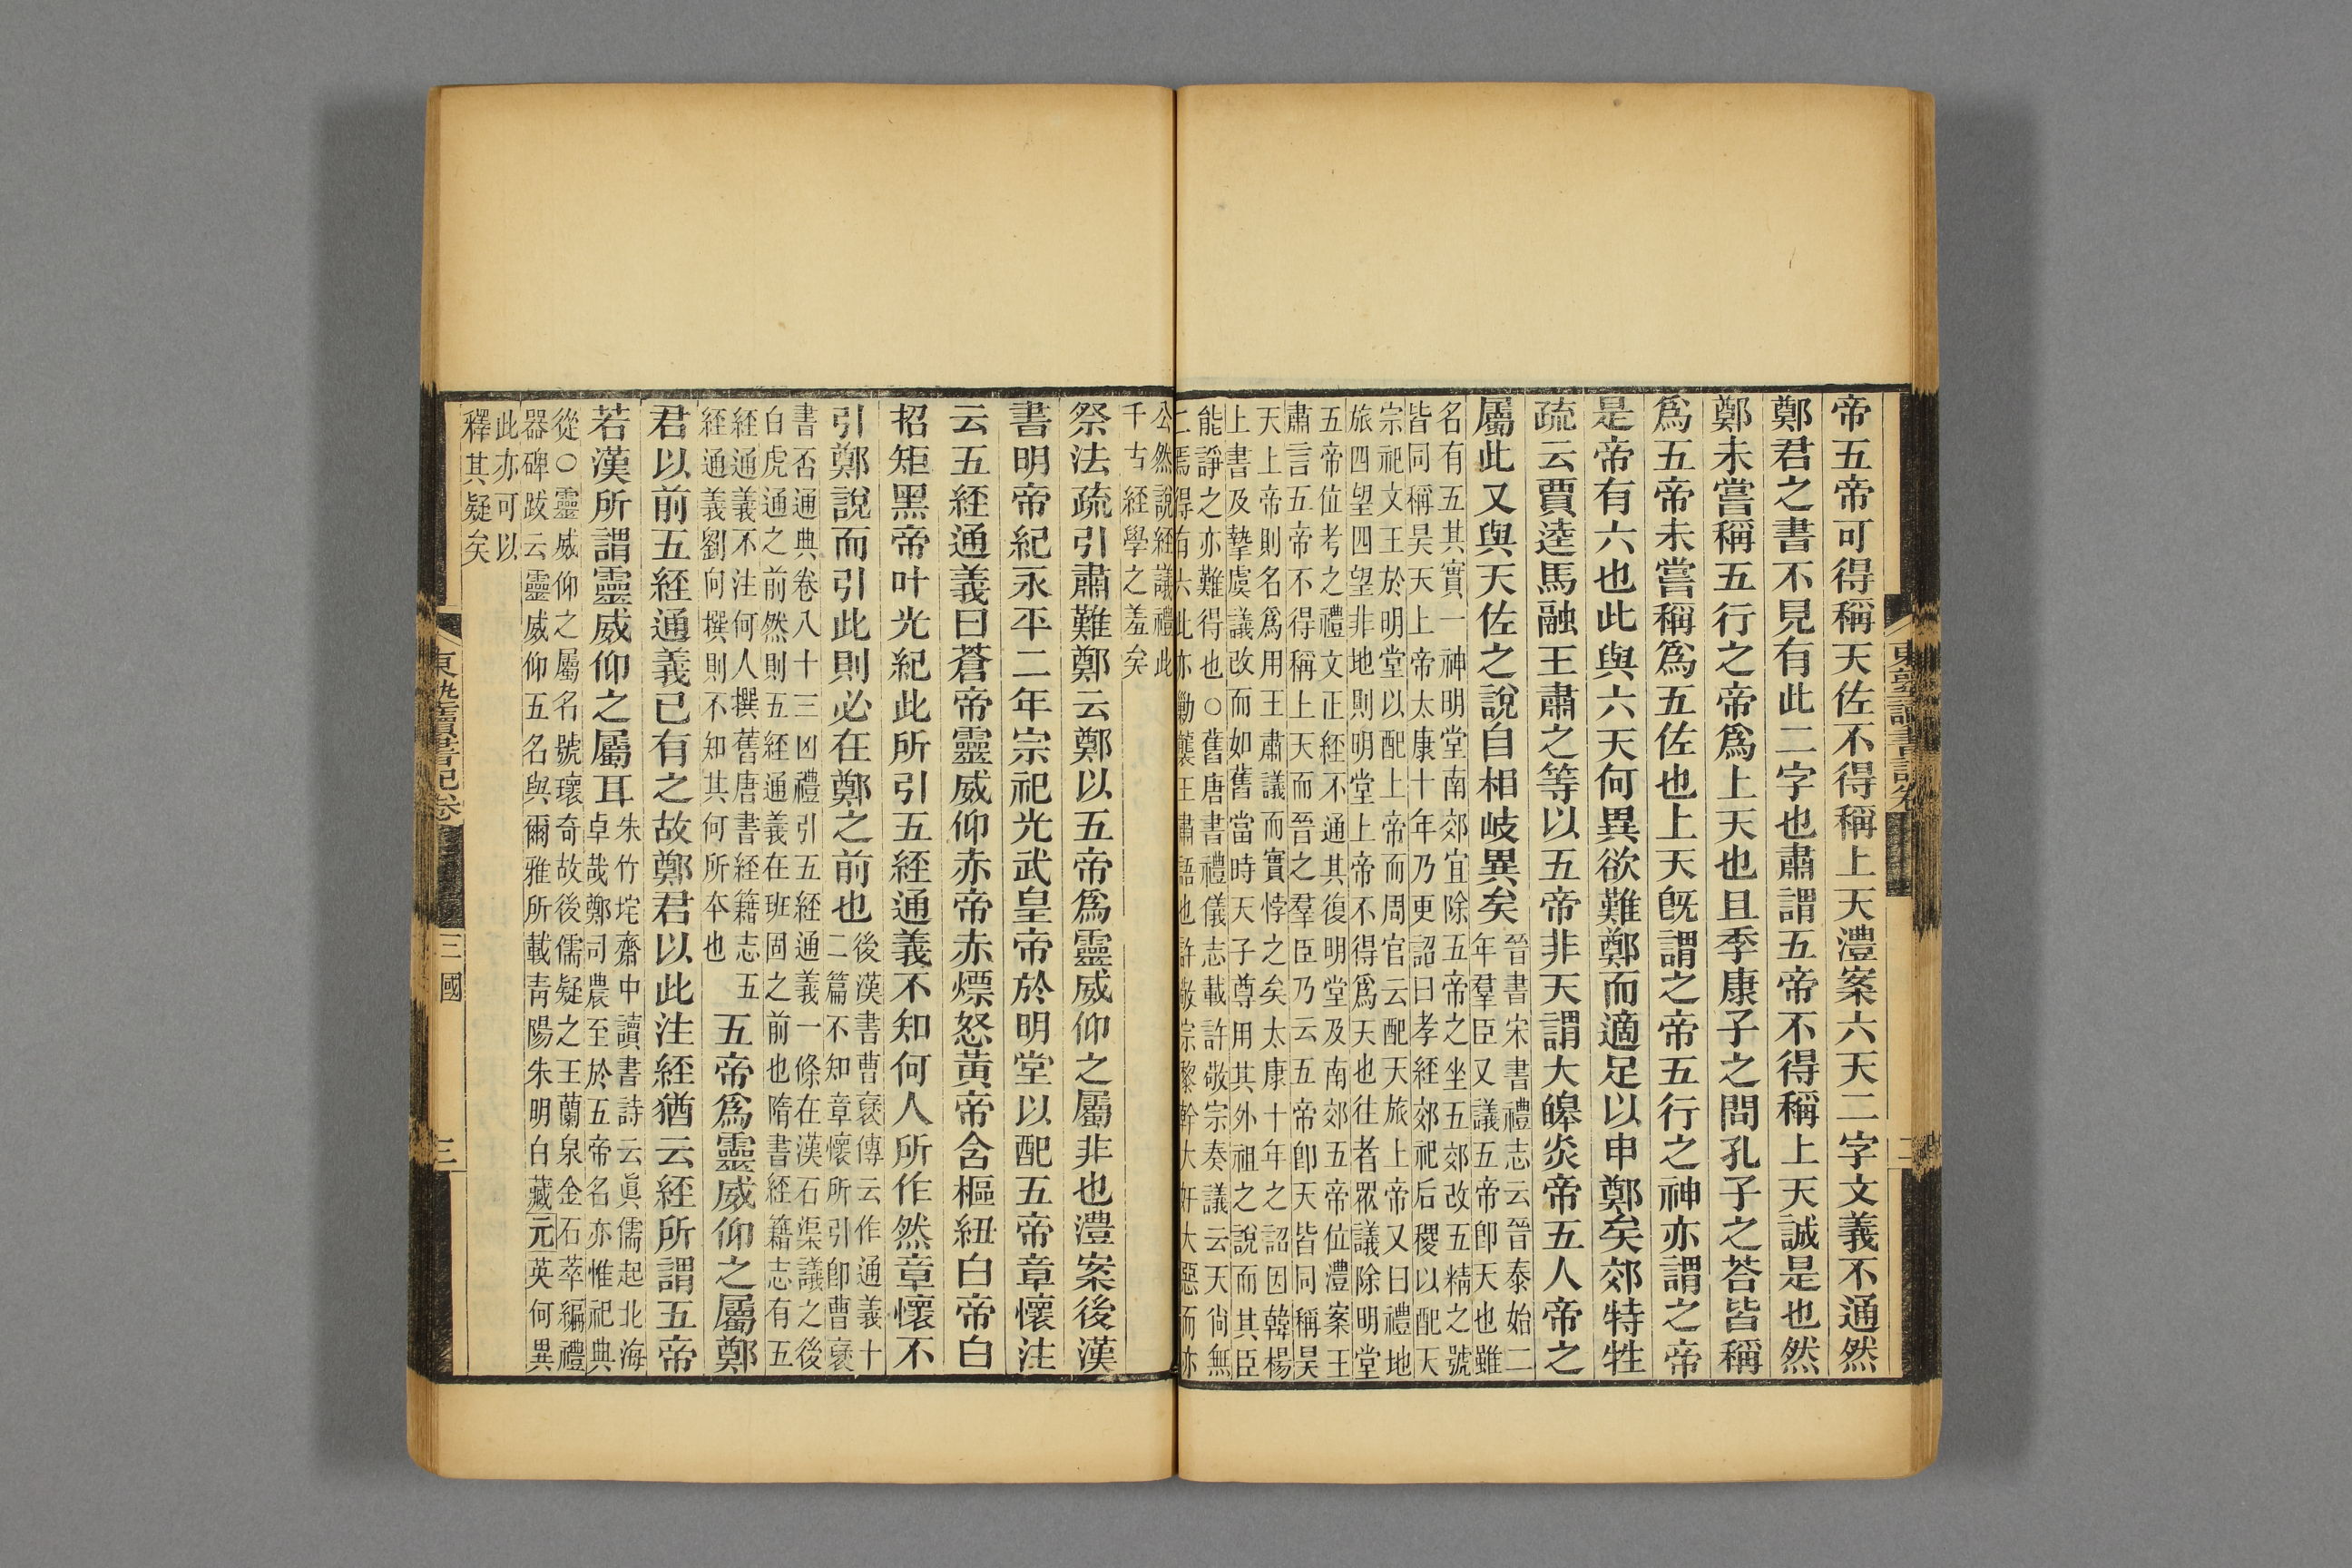 帝五帝可得稱天佐不得稱上天澧案六天二字文義不通然
鄭君之書不見有此二字也肅謂五帝不得稱上天誠是也然
鄭未嘗稱五行之帝爲上天也且季康子之問孔子之荅皆稱
爲五帝未嘗稱爲五佐也上天旣謂之帝五行之神亦謂之帝
是帝有六也此與六天何異欲難鄭而適足以申鄭矣郊特牲
疏云賈逵馬融王肅之等以五帝非天謂大皞炎帝五人帝之
屬此又與天佐之說自相岐異矣
晉書宋書禮志云晉泰始二
年羣臣又議五帝卽天也雖
名有五其實一神明堂南郊宜除五帝之坐五郊改五精之號
皆同稱昊天上帝太康十年乃更詔曰孝經郊祀后稷以配天
宗祀文王於明堂以配上帝而周官云配天旅上帝又曰禮地
旅四望四望非地則明堂上帝不得爲天也往者眾議除明堂
五帝位考之禮文正經不通其復明堂及南郊五帝位澧案王
肅言五帝不得稱上天而晉之羣臣乃云五帝卽天皆同稱昊
天上帝則名爲用王肅議而實悖之矣太康十年之詔因韓楊
上書及摯虞議改而如舊當時天子尊用其外祖之說而其臣
能諍之亦難得也○舊唐書禮儀志載許敬宗奏議云天尙無
二焉得有六此亦勦襲王肅語也許敬宗黎幹大奸大惡而亦
公然說經議禮此
千古經學之羞矣
祭法疏引肅難鄭云鄭以五帝爲靈威仰之屬非也澧案後漢
書明帝紀永平二年宗祀光武皇帝於明堂以配五帝章懷注
云五經通義曰蒼帝靈威仰赤帝赤熛怒黃帝含樞紐白帝白
招矩黑帝叶光紀此所引五經通義不知何人所作然章懷不
引鄭說而引此則必在鄭之前也
後漢書曹襃傳云作通義十
二篇不知章懷所引卽曹襃
書否通典卷八十三凶禮引五經通義一條在漢石渠議之後
白虎通之前然則五經通義在班固之前也隋書經籍志有五
經通義不注何人撰舊唐書經籍志五
經通義劉向撰則不知其何所夲也
五帝爲靈威仰之屬鄭
君以前五經通義已有之故鄭君以此注經猶云經所謂五帝
若漢所謂靈威仰之屬耳
朱竹垞齋中讀書詩云眞儒起北海
卓哉鄭司農至於五帝名亦惟祀典
從○靈威仰之屬名號瓌奇故後儒疑之王蘭泉金石萃編禮
器碑跋云靈威仰五名與爾雅所載靑陽朱明白藏元英何異
此亦可以
釋其疑矣
東塾讀書記卷
二
東塾讀書記卷
三國
三